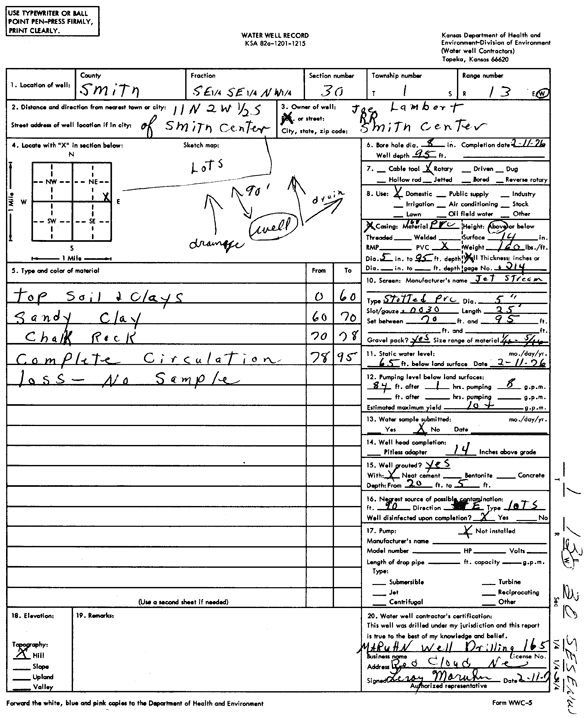 USE TYPEWRITER OR BALL
POINT PEN-PRESS FIRMLY,
PRINT CLEARLY.
WATER WELL RECORD
KSA 82a-1201-1215
Kansas Department of Health and
Environment-Division of Environment
(Water well Contractors)
Topeka, Kansas 66620
1. Location of well:
County Smith
Fraction SE1/4 SE1/4 NW1/4
Section number 30
Township number T 1 S
Range number R 13 E(W)
2. Distance and direction from nearest town or city: 11N 2W 1/2S
Street address of well location if in city: of Smith Center
3. Owner of well: Joe Lambert
R.R. or street: RR
City, state, zip code: Smith Center
4. Locate with "X" in section below:
Sketch map:
N
NW NE
W X E
SW SE
S
1 Mile
1 Mile
LOTS
90'
drainage
well
drain
6. Bore hole dia. 8 in. Completion date 2-11-76
Well depth 95 ft.
7. Cable tool X Rotary Driven Dug
Hollow rod Jetted Bored Reverse rotary
8. Use: X Domestic Public supply Industry
Irrigation Air conditioning Stock
Lawn Oil field water Other
9. Casing: Material 160 PVC Height: Above or below
Threaded Welded Surface 14 in.
RMP PVC X Weight 160 lbs./ft.
Dia. 5 in. to 95 ft. depth Wall Thickness: inches or
Dia. in. to ft. depth gage No. .214
5. Type and color of material From To
Top Soil & Clays 0 60
Sandy Clay 60 70
Chalk Rock 70 78
Complete Circulation 78 95
loss - No Sample
(Use a second sheet if needed)
10. Screen: Manufacturer's name Jet Stream
Type Slotted Pvc Dia. 5"
Slot/gauze .0030 Length 25'
Set between 70 ft. and 95 ft.
ft. and ft.
Gravel pack? yes Size range of material
11. Static water level: mo./day/yr.
65 ft. below land surface Date 2-11-76
12. Pumping level below land surfaces:
84 ft. after 1 hrs. pumping 8 g.p.m.
ft. after hrs. pumping g.p.m.
Estimated maximum yield 10+ g.p.m.
13. Water sample submitted: mo./day/yr.
Yes X No Date
14. Well head completion:
Pitless adapter 14 Inches above grade
15. Well grouted? yes
With: X Neat cement Bentonite Concrete
Depth: From 20 ft. to 5 ft.
16. Nearest source of possible contamination:
ft. 90 Direction E Type LOTS
Well disinfected upon completion? X Yes No
17. Pump: X Not installed
Manufacturer's name
Model number HP Volts
Length of drop pipe ft. capacity g.p.m.
Type:
Submersible Turbine
Jet Reciprocating
Centrifugal Other
18. Elevation:
Topography:
X Hill
Slope
Upland
Valley
19. Remarks:
20. Water well contractor's certification:
This well was drilled under my jurisdiction and this report
is true to the best of my knowledge and belief.
MARUHN Well Drilling 165
Business name License No.
Address Red Cloud, Ne
Signed Leroy Maruhn Date 2-11-7
Authorized representative
Forward the white, blue and pink copies to the Department of Health and Environment
Form WWC-5
T 1
R 13 W
Sec 30
SE SE NW
1/4 1/4 1/4